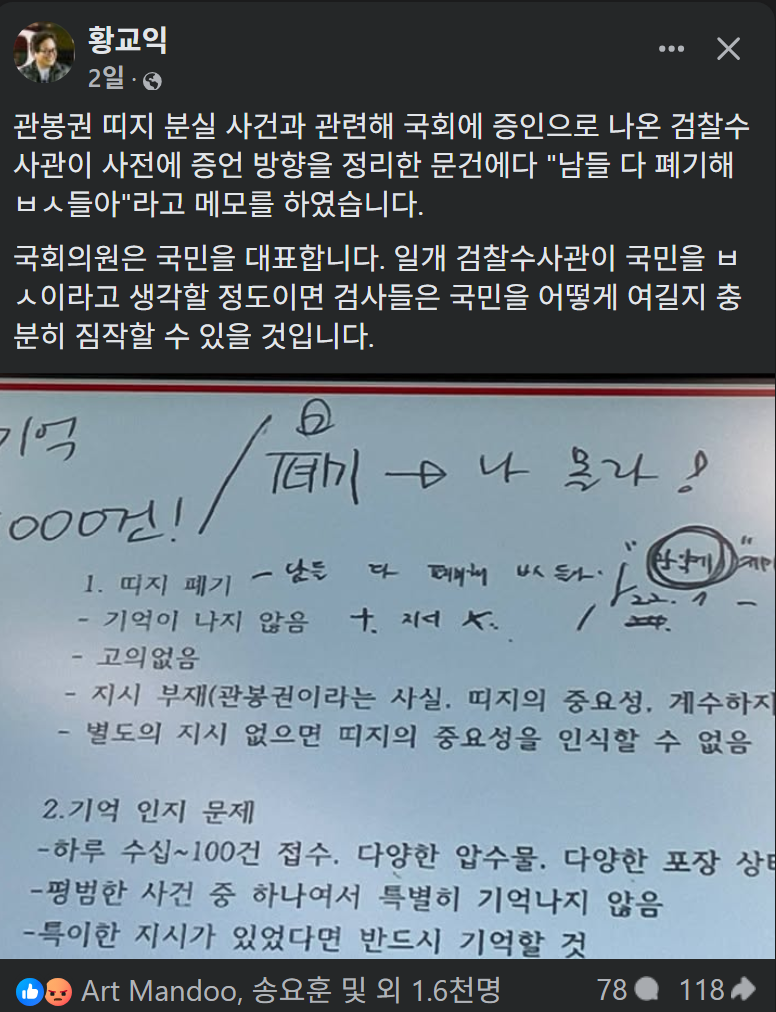 황교익
2일 ·
관봉권 띠지 분실 사건과 관련해 국회에 증인으로 나온 검찰수
사관이 사전에 증언 방향을 정리한 문건에다 "남들 다 폐기해
ㅂㅅ들아"라고 메모를 하였습니다.
국회의원은 국민을 대표합니다. 일개 검찰수사관이 국민을 ㅂ
ㅅ이라고 생각할 정도이면 검사들은 국민을 어떻게 여길지 충
분히 짐작할 수 있을 것입니다.
기억
000건!
폐기 → 나 몰라!
1. 띠지 폐기 - 남들 다 폐기해 ㅂㅅ들아.
- 기억이 나지 않음 +. 지시 x.
- 고의없음
- 지시 부재(관봉권이라는 사실, 띠지의 중요성, 계수하지
- 별도의 지시 없으면 띠지의 중요성을 인식할 수 없음
2.기억 인지 문제
-하루 수십~100건 접수, 다양한 압수물, 다양한 포장 상태
-평범한 사건 중 하나여서 특별히 기억나지 않음
-특이한 지시가 있었다면 반드시 기억할 것
Art Mandoo, 송요훈 및 외 1.6천명
78 118